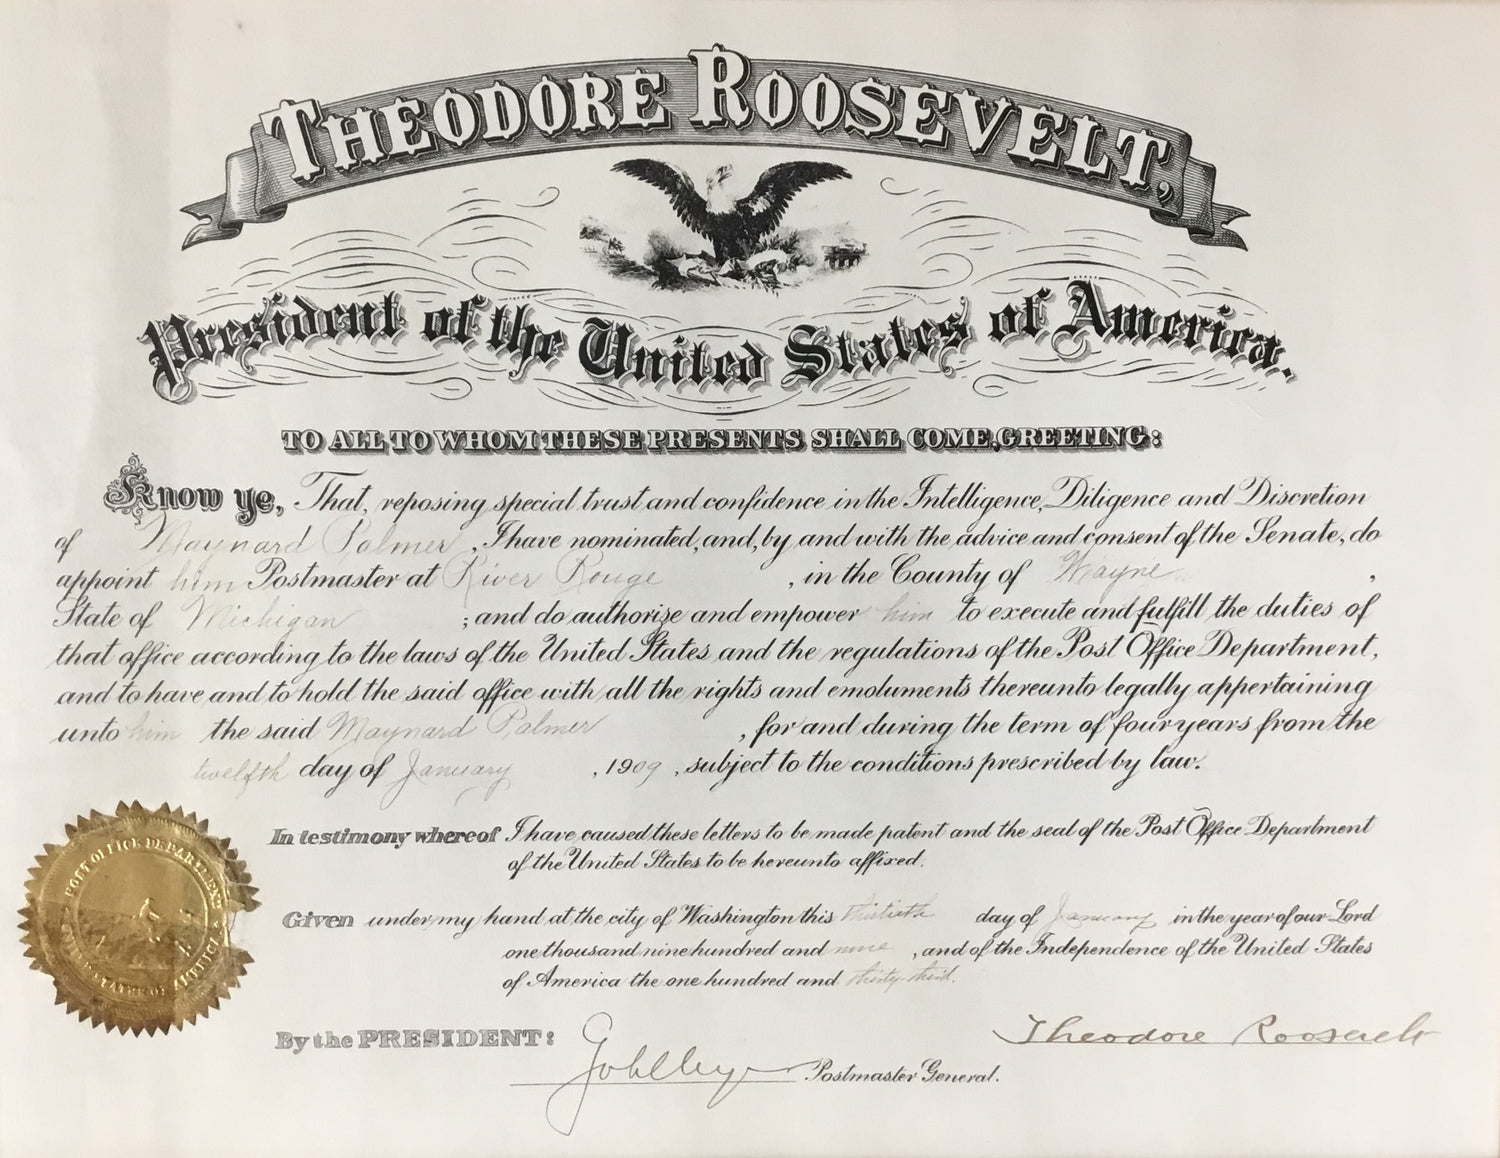 THEODORE ROOSEVELT,
President of the United States of America.
TO ALL TO WHOM THESE PRESENTS SHALL COME, GREETING:
Know ye, That, reposing special trust and confidence in the Intelligence, Diligence and Discretion
of Maynard Palmer, I have nominated, and, by and with the advice and consent of the Senate, do
appoint him Postmaster at River Rouge, in the County of Wayne,
State of Michigan; and do authorize and empower him to execute and fulfill the duties of
that office according to the laws of the United States and the regulations of the Post Office Department,
and to have and to hold the said office with all the rights and emoluments thereunto legally appertaining
unto him the said Maynard Palmer, for and during the term of four years from the
twelfth day of January, 1909, subject to the conditions prescribed by law.
In testimony whereof I have caused these letters to be made patent and the seal of the Post Office Department
of the United States to be hereunto affixed.
Given under my hand at the city of Washington this thirtieth day of January in the year of our Lord
one thousand nine hundred and nine, and of the Independence of the United States
of America the one hundred and thirty-third.
POST OFFICE DEPARTMENT
UNITED STATES OF AMERICA
By the PRESIDENT:
Theodore Roosevelt
Postmaster General.